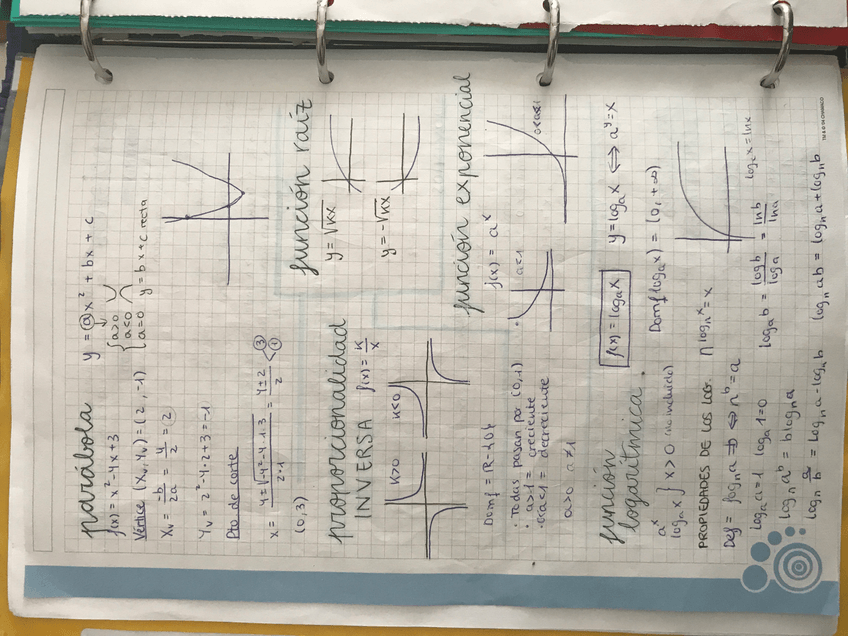 parábola y = ax² + bx + c
f(x) = x² - 4x + 3
a>0
a<0
a=0 y = bx + c recta
Vértice (Xv, Yv) = (2, -1)
Xv = -b/2a = 4/2 = 2
Yv = 2² - 4·2 + 3 = -1
Pto de corte
x = 4 ± √-4² - 4·1·3 / 2·1 = 4 ± 2 / 2 3 1
(0, 3)
función raíz
y = √kx
y = -√kx
proporcionalidad
INVERSA f(x) = K/x
K>0 K<0
Domf = R - {0}
función exponencial
f(x) = a^x
a<1
0<a<1
· Todas pasan por (0, 1)
· a>1 = creciente
· 0<a<1 = decreciente
a>0 a≠1
función
logarítmica.
f(x) = logₐx y = logₐx ⟺ a^y = x
a^x
logₐx } x>0 (no incluido)
Domf logₐx) = (0, +∞)
PROPIEDADES DE LOS LOG.
n^logₙx = x
Def = logₙa = b ⟺ n^b = a
logₐa = 1 logₐ1 = 0
logₐb = log b / log a = ln b / ln a
logₑx = lnx
logₙ a^b = b logₙ a
logₙ a/b = logₙ a - logₙ b
logₙ ab = logₙ a + logₙ b